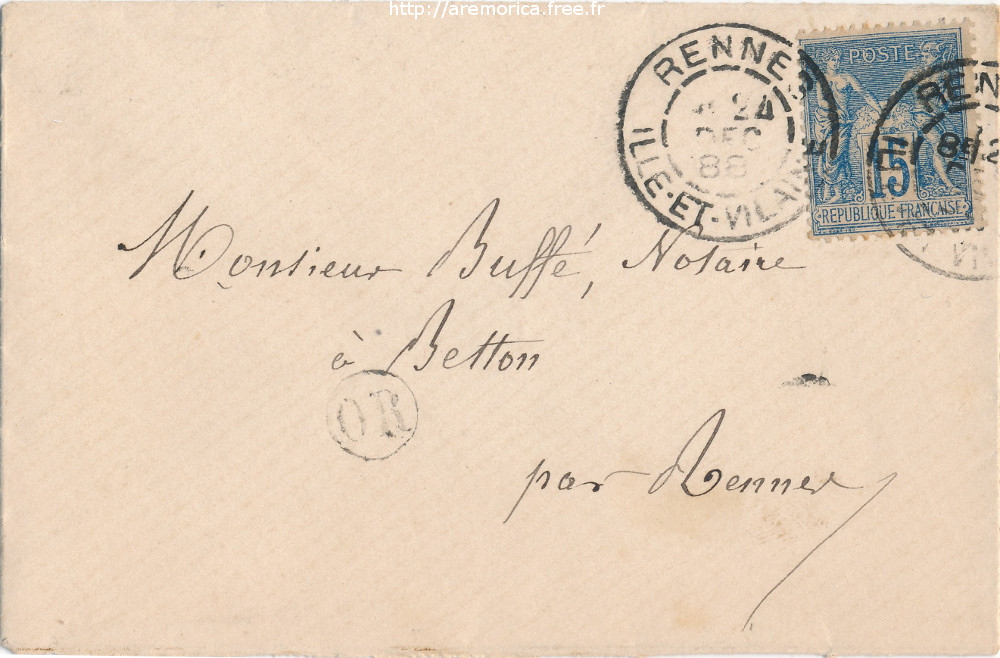 http://aremorica.free.fr
RENNES
24
DEC
88
ILLE-ET-VILAINE
POSTE
15
RÉPUBLIQUE FRANÇAISE
REN
Monsieur Buffé, Notaire
à Betton
OR
par Rennes